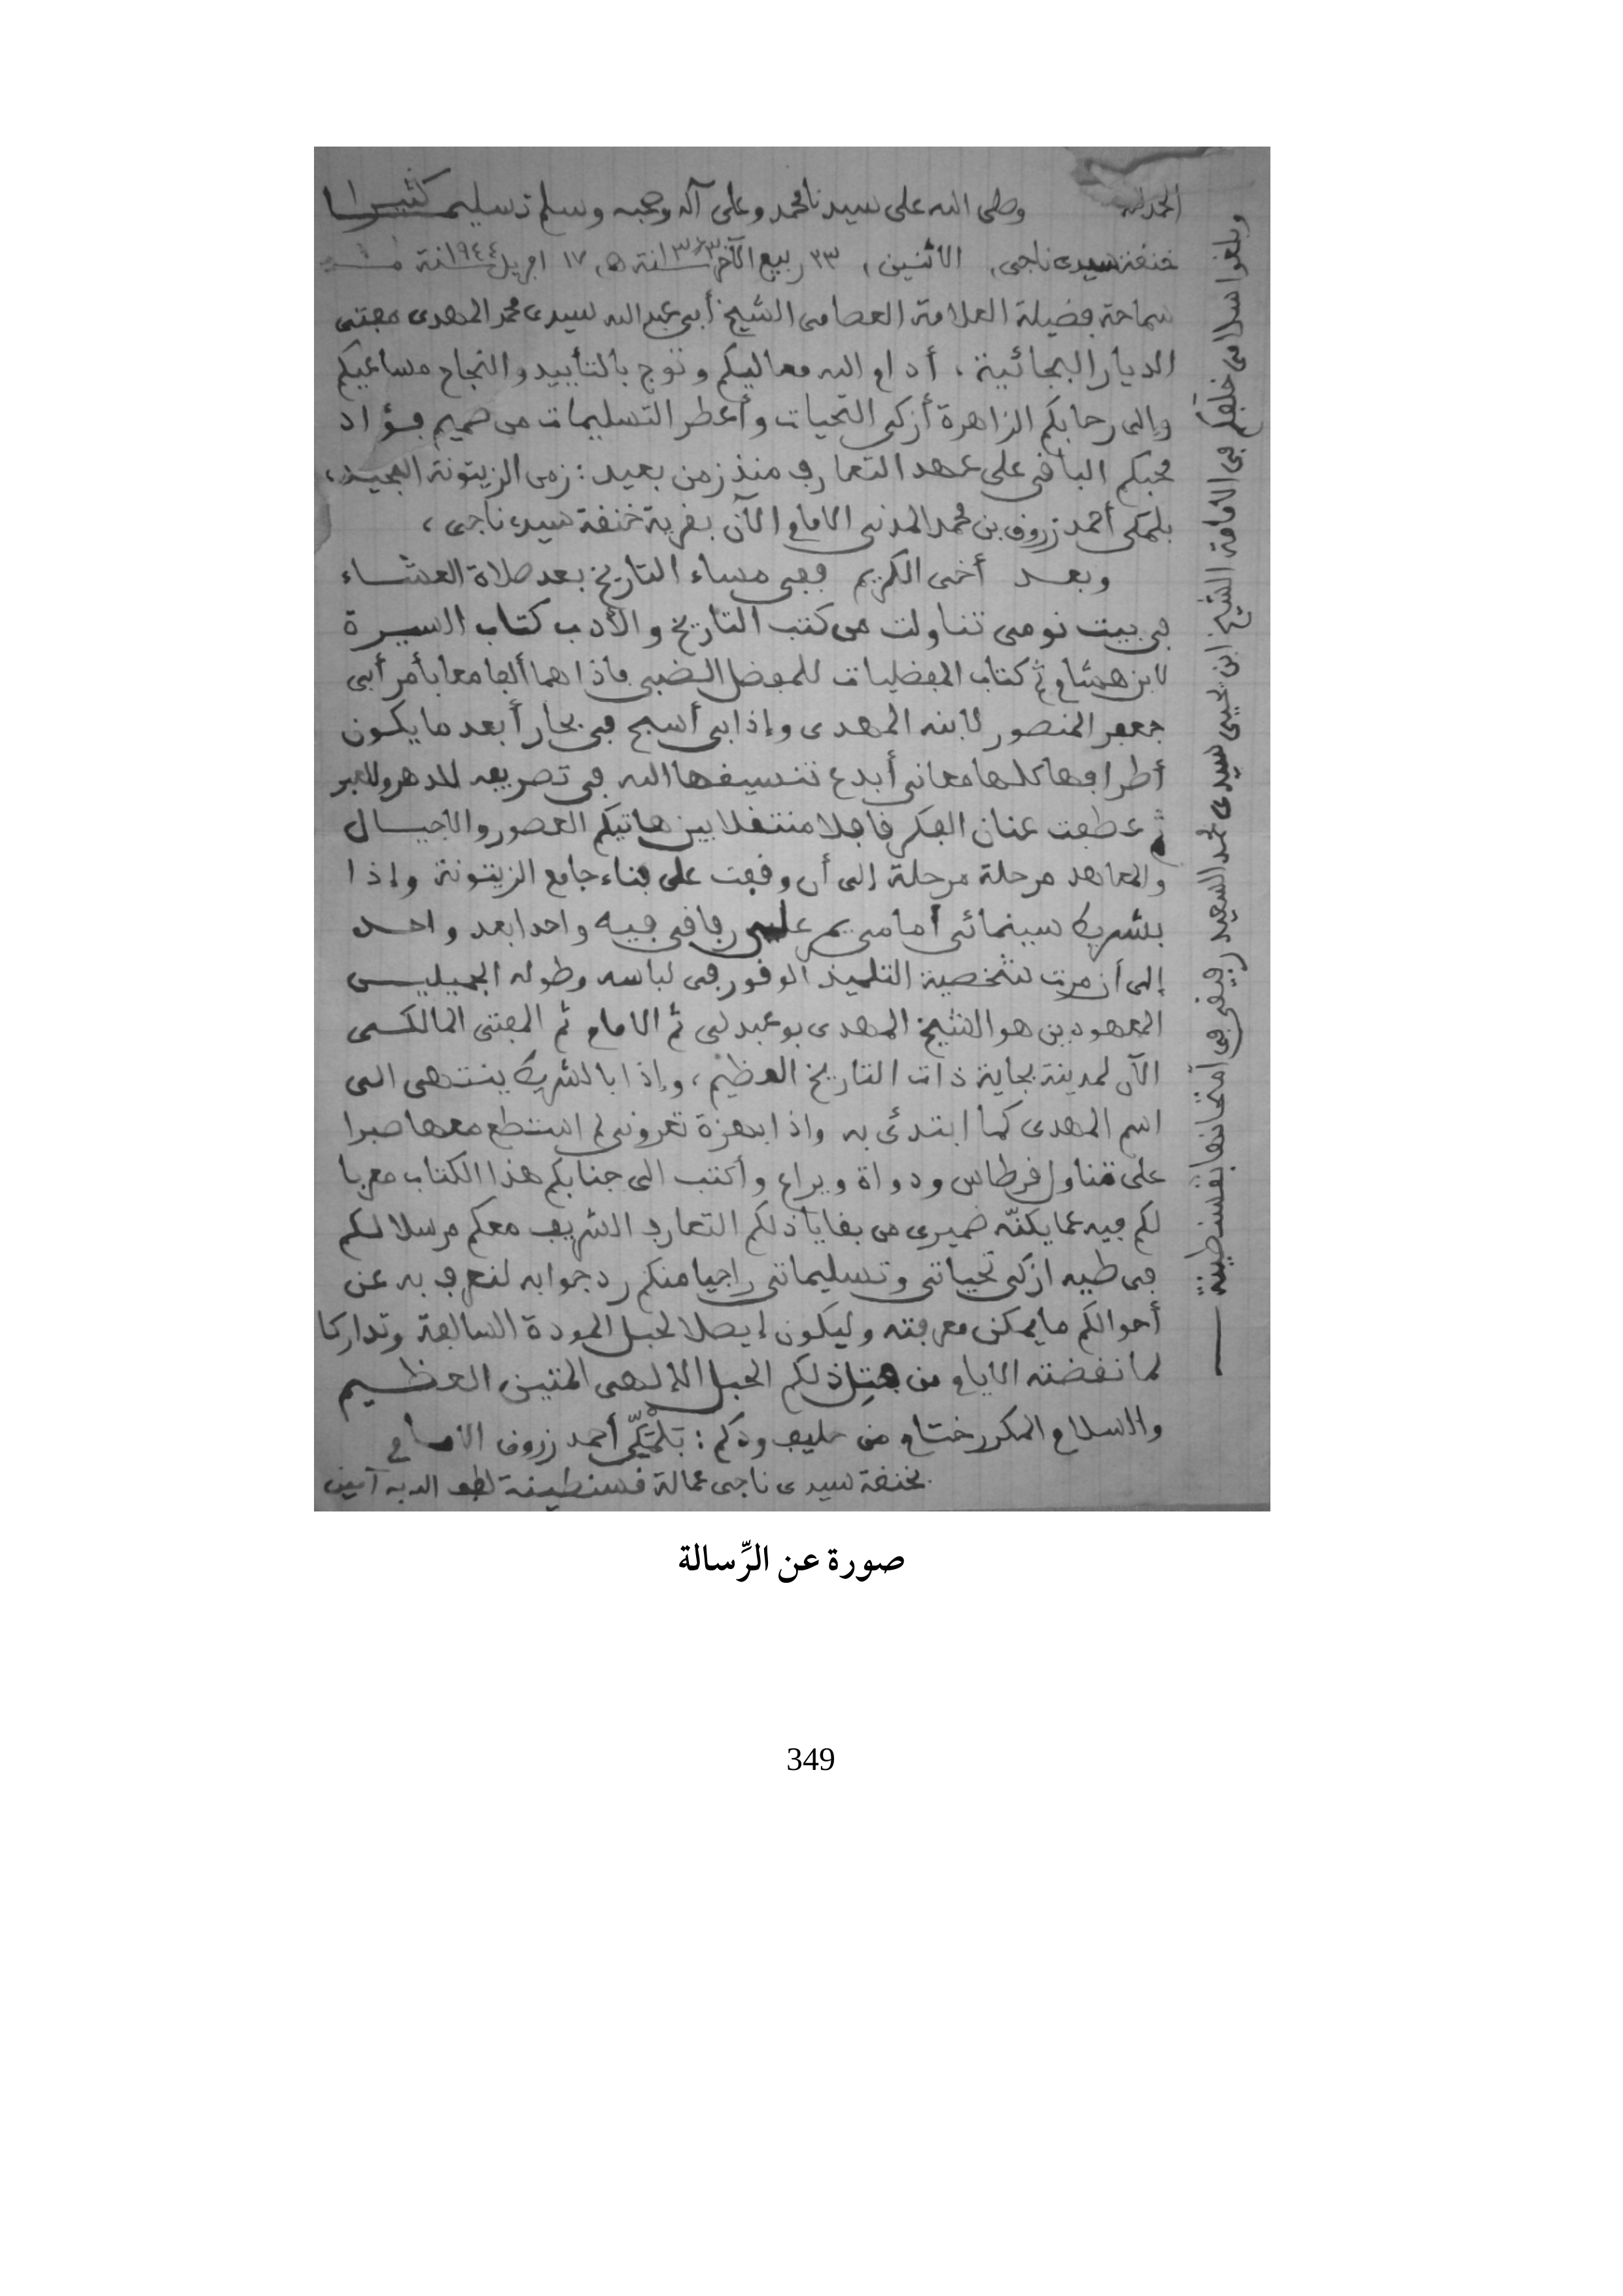 الحمد لله وصلى الله على سيدنا محمد وعلى آله وصحبه وسلم تسليما كثيرا
خنقة سيدي ناجي، الاثنين، ٢٣ ربيع الآخر ١٣٦٣ سنة ه، ١٧ افريل ١٩٤٤ سنة
سماحة فضيلة العلامة العصامي الشيخ أبي عبد الله سيدي محمد المهدي مفتي
الديار البجائية، أدام الله معاليكم وتوج بالتأييد والنجاح مساعيكم
وإلى رحابكم الزاهرة أزكى التحيات وأعطر التسليمات من صميم فؤاد
محبكم الباقي على عهد التعارف منذ زمن بعيد: زمن الزيتونة المجيد،
بلمكي أحمد زروق بن محمد المدني الامام الآن بقرية خنقة سيدي ناجي،
وبعد أخي الكريم ففي مساء التاريخ بعد صلاة العشاء
في بيت نومي تناولت من كتب التاريخ والأدب كتاب السيرة
لابن هشام ثم كتاب المفضليات للمفضل الضبي فاذا هما ألفا معا بأمر أبي
جعفر المنصور لابنه المهدي وإذا بي أسبح في بحار أبعد ما يكون
أطرافها كلها معاني أبدع تنسيقها الله في تصريفه للدهر وللعبر
ثم عطفت عنان الفكر قافلا منتقلا بين هاتيكم العصور والاجيال
والمعاهد مرحلة مرحلة إلى أن وقفت على فناء جامع الزيتونة وإذا
بشريط سينمائي أمامي يمر علي رفاقي فيه واحدا بعد واحد
إلى أن مرت شخصية التلميذ الوقور في لباسه وطوله الجميليـن
المعهودين هو الشيخ المهدي بوعبدلي ثم الامام ثم المفتي المالكي
الآن لمدينة بجاية ذات التاريخ العظيم، وإذا بالشريط ينتهي الى
اسم المهدي كما ابتدئ به واذا بهزة تعروني لم استطع معها صبرا
على تناول قرطاس ودواة ويراع وأكتب الى جنابكم هذا الكتاب معربا
لكم فيه عما يكنّه ضميري من بقايا ذلكم التعارف الشريف معكم مرسلا لكم
في طيه ازكى تحياتي وتسليماتي راجيا منكم رد جوابه لنعرف به عن
أحوالكم ما يمكن معرفته وليكون إيصلا لحبل المودة السالفة وتداركا
لما نقضته الايام من فتل ذلكم الحبل الإلهي المتين العظيم
والسلام المكرر ختام من حليف ودكم: بَلْمَكِّي أحمد زروق الامام
بخنقة سيدي ناجي عمالة قسنطينة لطف الله به آمين
وبلغوا سلامي خلفكم في الامامة الشيخ ابن يحيى سيدي محمد السعيد رفيقي في امتحانها بقسنطينة
صورة عن الرِّسالة
349